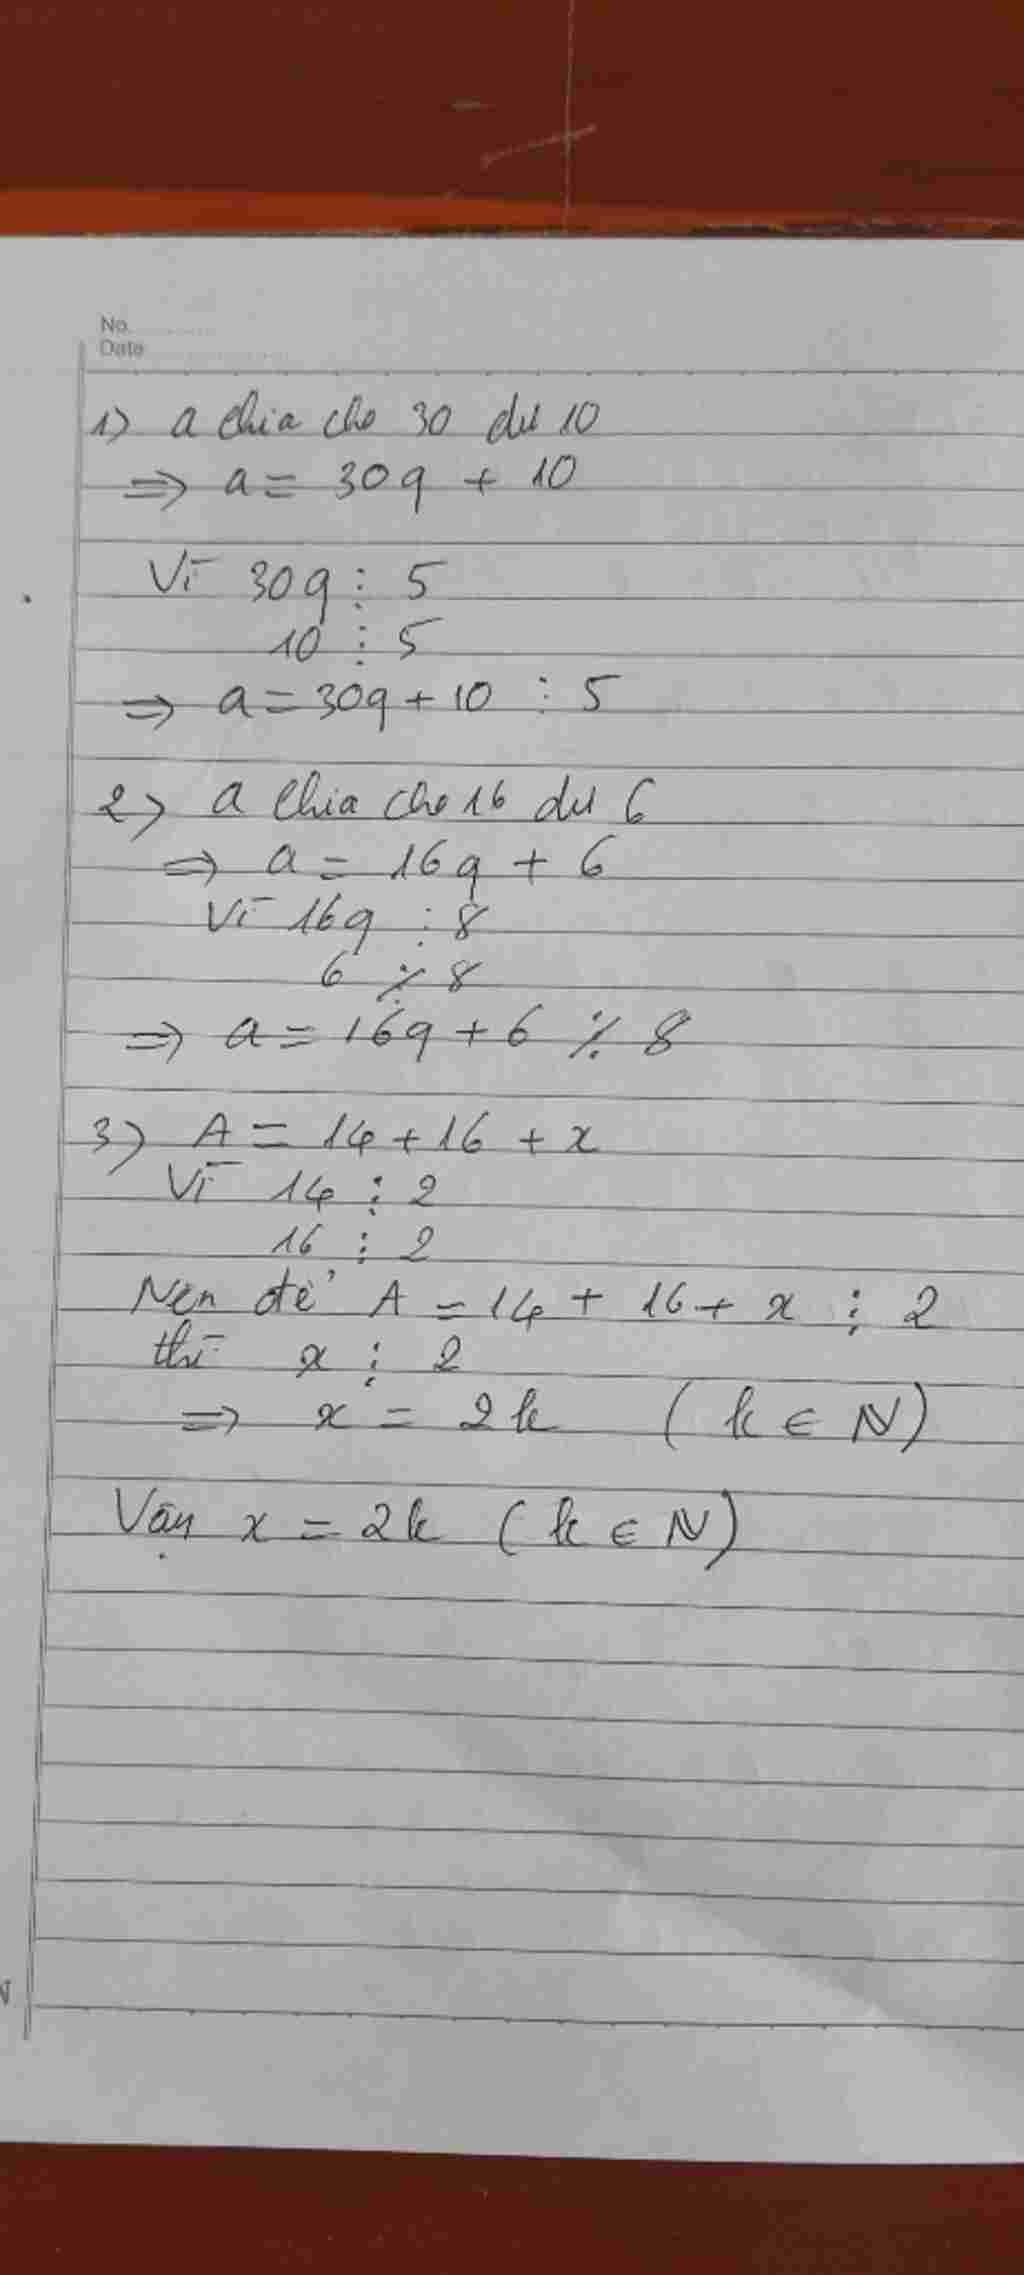 No.
Date
1) a chia cho 30 dư 10
⇒ a = 30q + 10
Vì 30q ⋮ 5
10 ⋮ 5
⇒ a = 30q + 10 ⋮ 5
2) a chia cho 16 dư 6
⇒ a = 16q + 6
Vì 16q ⋮ 8
6 ⋮̸ 8
⇒ a = 16q + 6 ⋮̸ 8
3) A = 14 + 16 + x
Vì 14 ⋮ 2
16 ⋮ 2
Nên để A = 14 + 16 + x ⋮ 2
thì x ⋮ 2
⇒ x = 2k (k ∈ N)
Vậy x = 2k (k ∈ N)